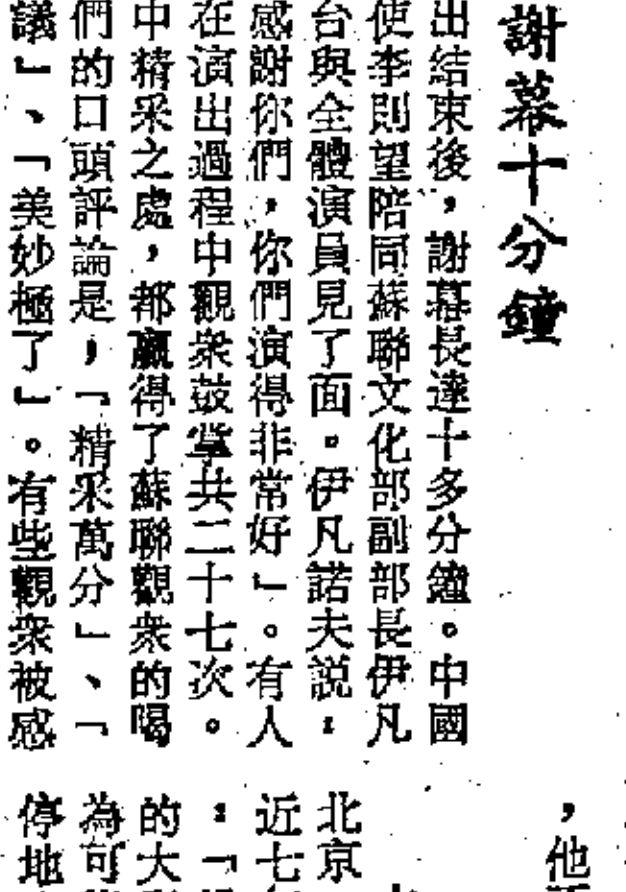 謝幕十分鐘
出結束後，謝幕長達十多分鐘。中國
使李則望陪同蘇聯文化部副部長伊凡
台與全體演員見了面。伊凡諾夫説：
感謝你們，你們演得非常好」。有人
在演出過程中觀衆鼓掌共二十七次。
中精采之處，都贏得了蘇聯觀衆的喝
們的口頭評論是，「精采萬分」、「
議」、「美妙極了」。有些觀衆被感
，他
北京
近七
：「
的大
為可
停地